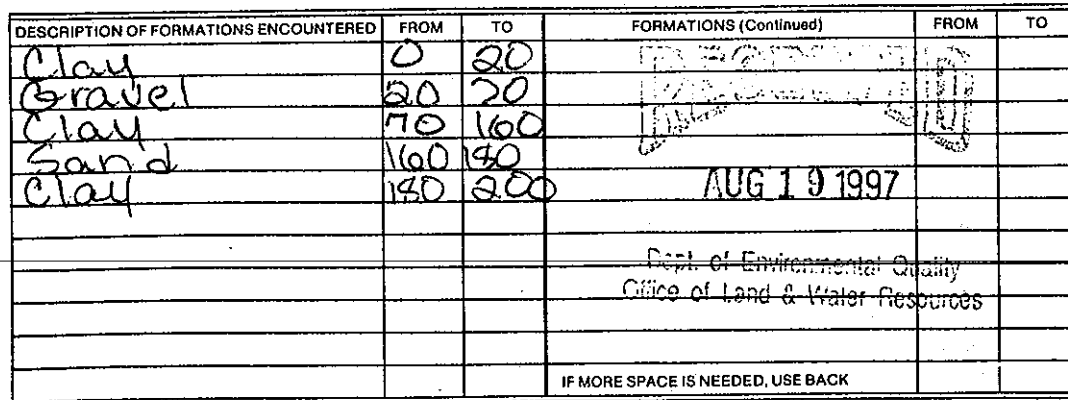 DESCRIPTION OF FORMATIONS ENCOUNTERED FROM TO FORMATIONS (Continued) FROM TO
Clay 0 20
Gravel 20 70
Clay 70 160
Sand 160 180
Clay 180 200
RECEIVED
AUG 19 1997
Dept. of Environmental Quality
Office of Land & Water Resources
IF MORE SPACE IS NEEDED, USE BACK